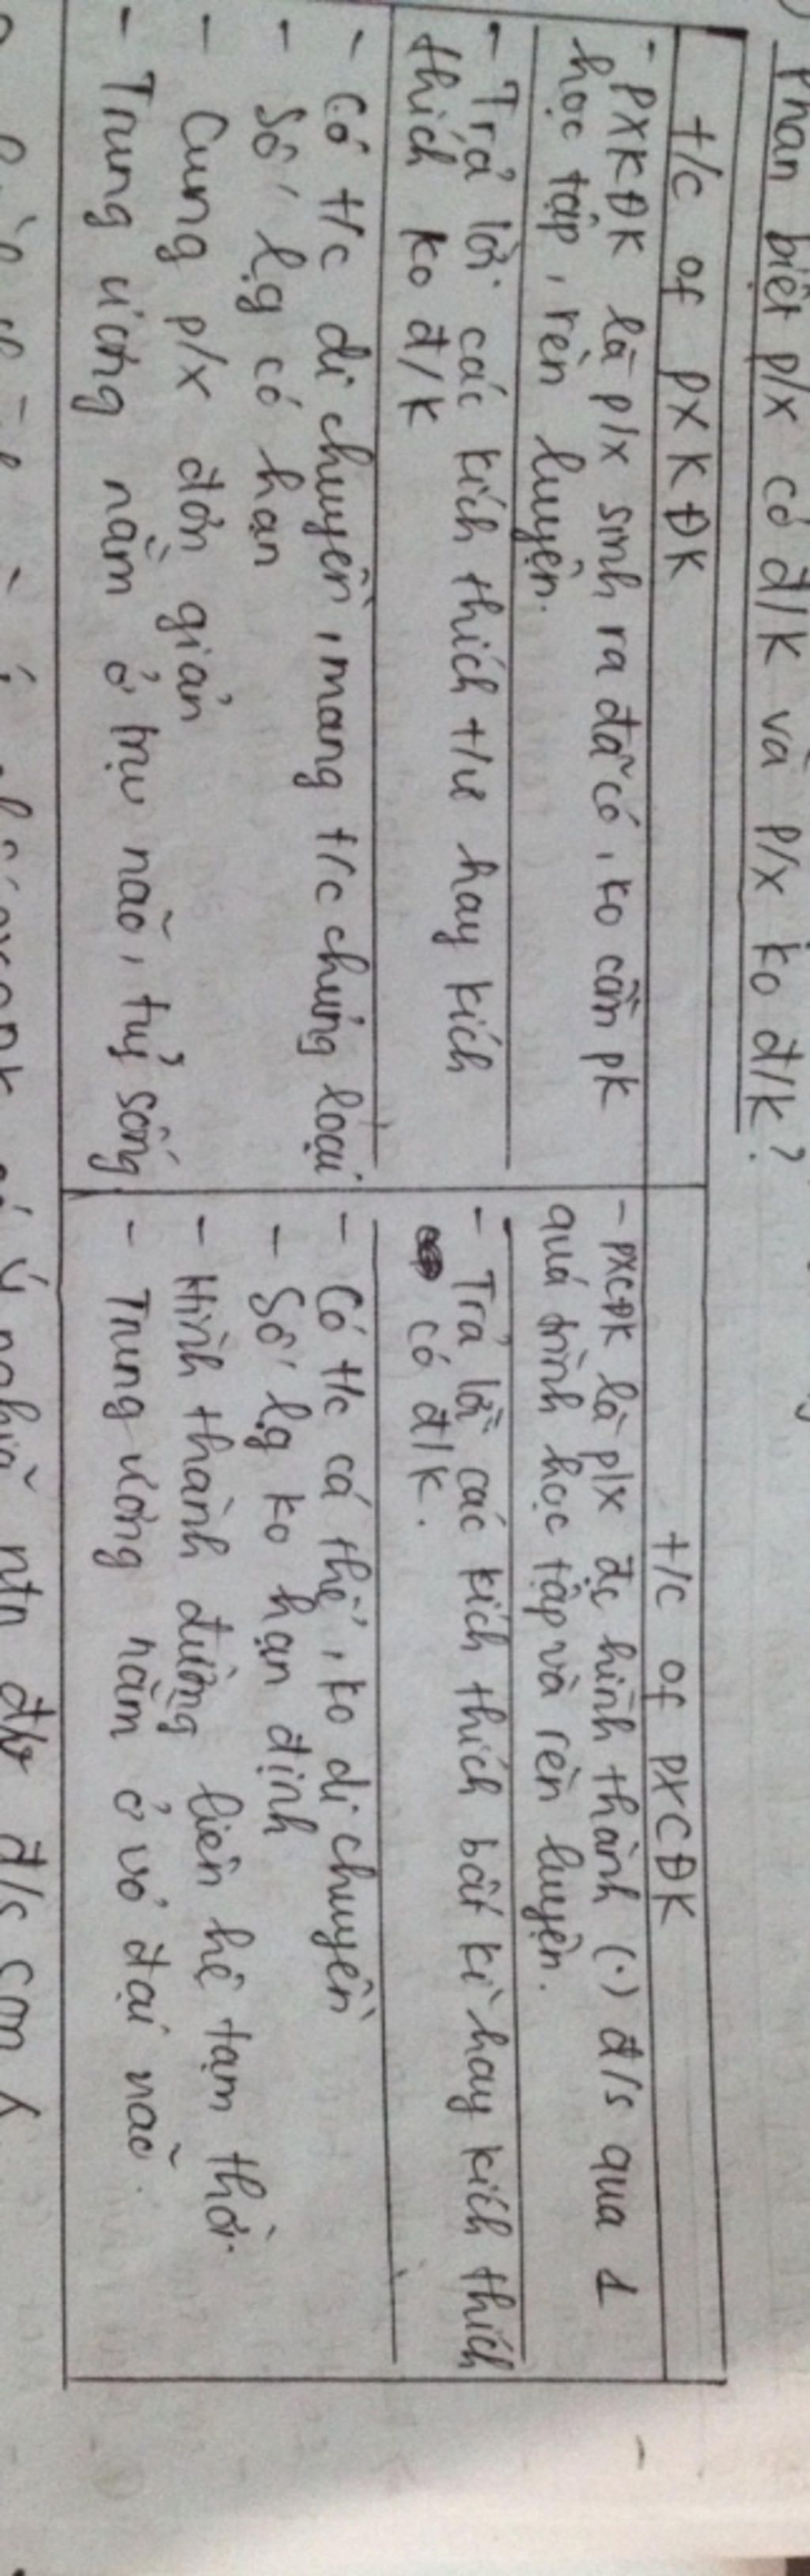 Phân biệt p/x có đ/k và p/x ko đ/k?
t/c of PXKĐK
- PXKĐK là p/x sinh ra đã có, ko cần pk
học tập, rèn luyện.
- Trả lời các kích thích t/ư hay kích
thích ko đ/k
- Có t/c di chuyền, mang t/c chủng loại
- Số lg có hạn
- Cung p/x đơn giản
- Trung ương nằm ở trụ não, tuỷ sống
t/c of PXCĐK
- PXCĐK là p/x đc hình thành (.) đ/s qua 1
quá trình học tập và rèn luyện.
- Trả lời các kích thích bất kì hay kích thích
có đ/k.
- Có t/c cá thể, ko di chuyền
- Số lg ko hạn định
- Hình thành đường liên hệ tạm thời.
- Trung ương nằm ở vỏ đại não.
ý nghĩa ntn đv đ/s con